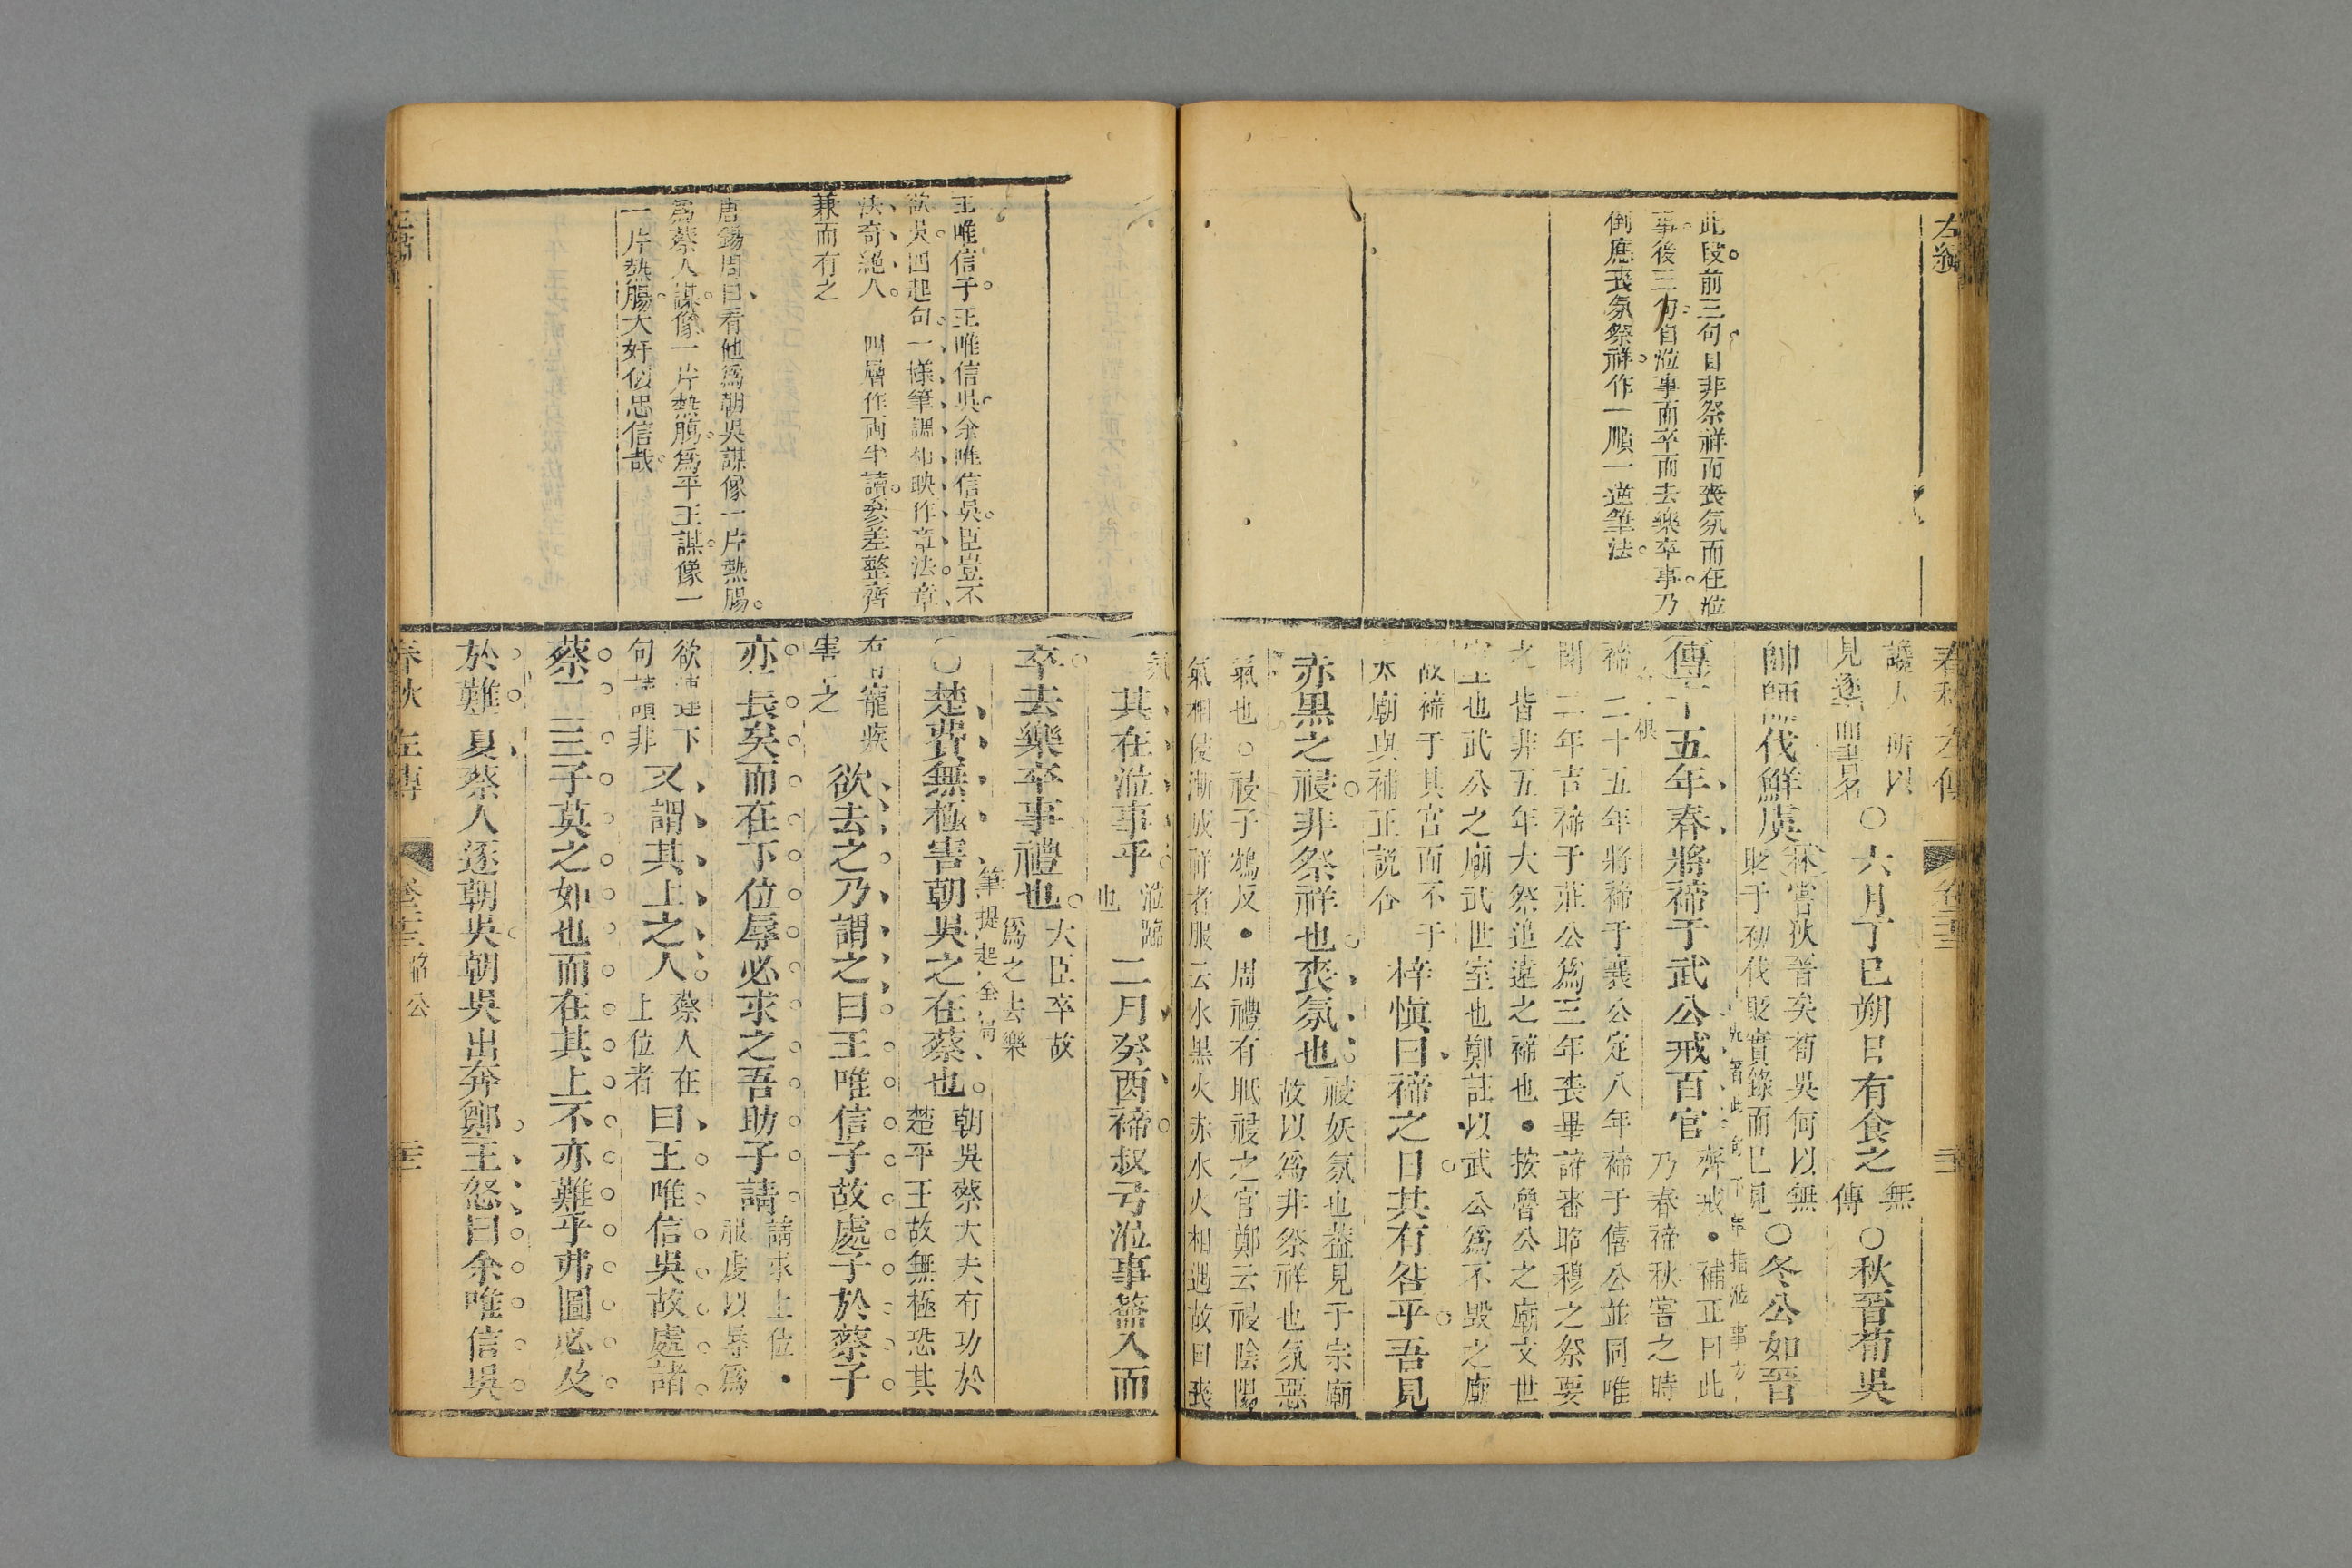 左繡
此段前三句自非祭祥而喪氛而在涖
事後三句自涖事而卒而去樂卒事乃
倒應喪氛祭祥作一順一逆筆法
春秋左傳
讒人所以
見逐而書名
○六月丁巳朔日有食之
無
傳
○秋晉荀吳
帥師伐鮮虞
嘗狄晉矣荀吳何以無
貶于初伐貶實錄而已見
○冬公如晉
傳十五年春將禘于武公戒百官
齊戒•補正曰此
乃春禘秋嘗之時
禘二十五年將禘于襄公定八年禘于僖公並同唯
閔二年吉禘于莊公爲三年喪畢諦審昭穆之祭要
之皆非五年大祭追遠之禘也•按魯公之廟文世
室也武公之廟武世室也鄭註以武公爲不毀之廟
故禘于其宮而不于
太廟與補正說合
梓愼曰禘之日其有咎乎吾見
赤黑之祲非祭祥也喪氛也
祲妖氛也葢見于宗廟
故以爲非祭祥也氛惡
氣也○祲子鴆反•周禮有眡祲之官鄭云祲陰陽
氣相侵漸成祥者服云水黑火赤水火相遇故曰喪
氛
其在涖事乎
涖臨
也
二月癸酉禘叔弓涖事籥入而
卒去樂卒事禮也
大臣卒故
爲之去樂
筆提起全局
○楚費無極害朝吳之在蔡也
朝吳蔡大夫有功於
楚平王故無極恐其
有寵疾
害之
欲去之乃謂之曰王唯信子故處子於蔡子
亦長矣而在下位辱必求之吾助子請
請求上位•
服虔以辱爲
欲連下
句讀非
又謂其上之人
蔡人在
上位者
曰王唯信吳故處諸
蔡二三子莫之如也而在其上不亦難乎弗圖必及
於難夏蔡人逐朝吳朝吳出奔鄭王怒曰余唯信吳
王唯信子王唯信吳余唯信吳臣豈不
欲吳四起句一樣筆調相映作章法章
法奇絕人　四層作兩半讀參差整齊
兼而有之
唐錫周曰看他爲朝吳謀像一片熱腸
爲蔡人謀像一片熱腸爲平王謀像一
一片熱腸大奸似忠信哉
春秋左傳
昭公